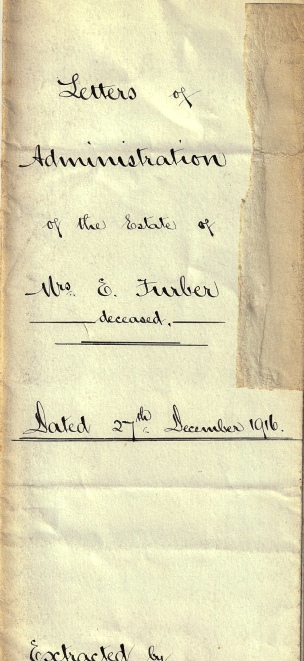 Letters of
Administration
of the Estate of
Mrs. E. Furber
deceased.
Dated 27th December 1916.
Extracted by